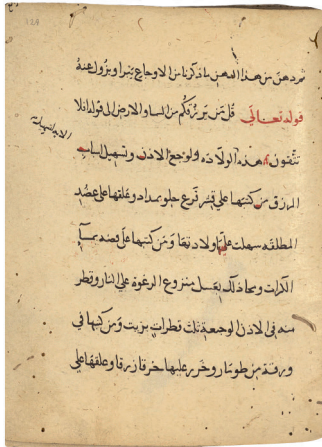 ثم دهن من هذا الدهن ما ذكرنا من الاوجاع تبرا ويزول عنه
قوله تعالى قل من يرزقكم من السما والارض الى قوله افلا
تتقون هذه الولاده ولوجع الاذن وتسهيل اسباب
الرزق من كتبها على قشر قرع حلو بمداد وعلقها على عضد
المطلقه سهلت عليها ولادتها ومن كتبها على بما
الكراث ومحا ذلك بعسل منزوع الرغوة على النار وقطر
منه في الاذن الوجعة ثلث قطرات بزيت ومن كتبها في
ورقة من طومار وخرر عليها خرقا زرقا وعلقها على